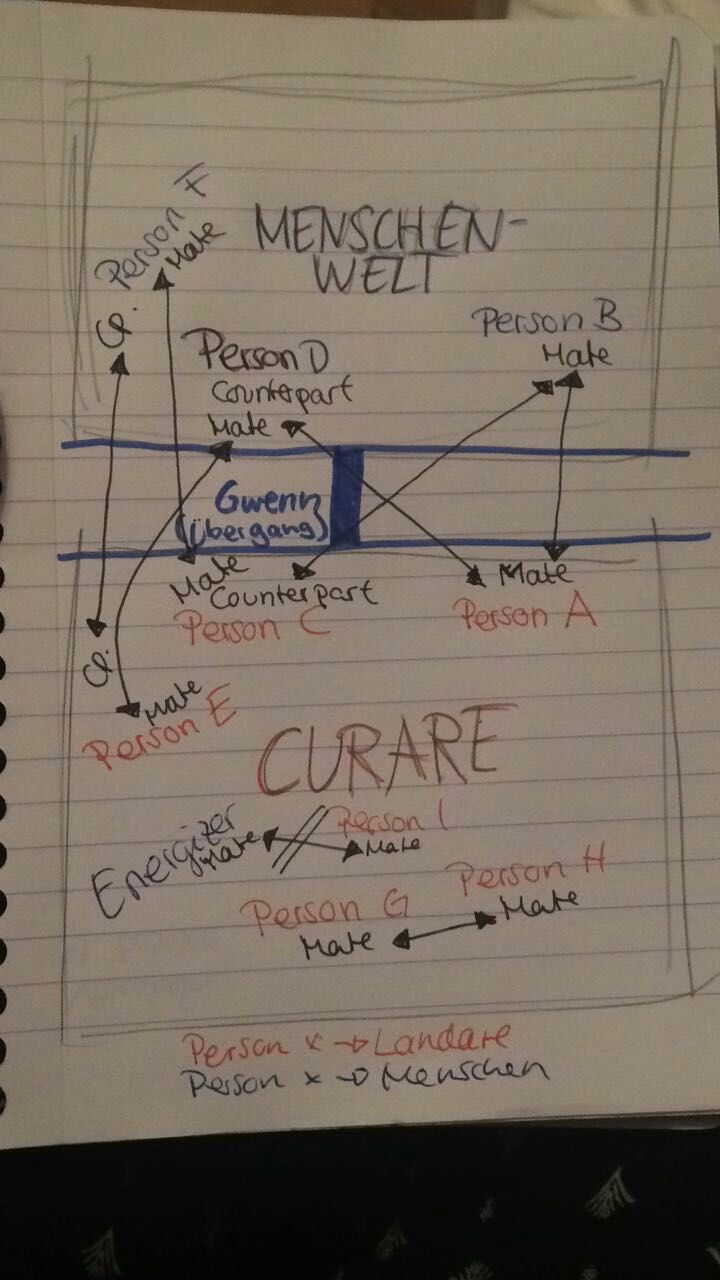 Person F
Mate
Cp.
MENSCHEN-
WELT
Person B
Mate
Person D
Counterpart
Mate
Gwenn
(Übergang)
Mate
Counterpart
Person C
Mate
Person A
Cp.
Mate
Person E
CURARE
Energizer
Mate
Person I
Mate
Person G
Mate
Person H
Mate
Person x → Landare
Person x → Menschen